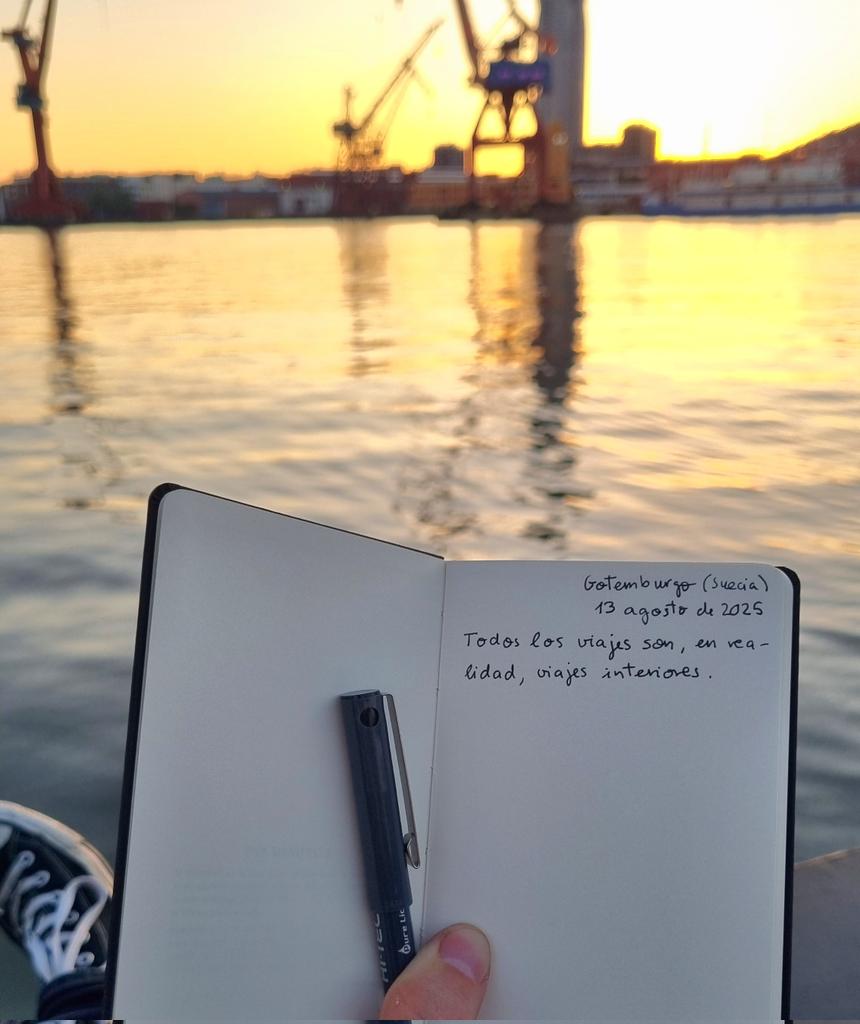 Gotemburgo (Suecia)
13 agosto de 2025
Todos los viajes son, en rea-
lidad, viajes interiores.
Pure Liq